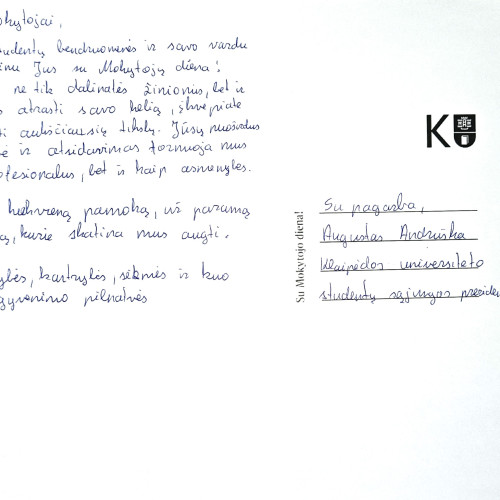 okytojai,
udentų bendruomenės ir savo vardu
inu Jus su Mokytojų diena!
ne tik dalinatės žiniomis, bet ir
s atrasti savo kelią, įkvepiate
ti aukščiausių tikslų. Jūsų nuoširdus
ė ir atsidavimas formuoja mus
ofesionalus, bet ir kaip asmenybes.
kiekvieną pamoką, už paramą
ą, kurie skatina mus augti.
ybės, kantrybės, sėkmės ir kuo
gyvenimo pilnatvės
KU
Su Mokytojo diena!
Su pagarba,
Augustas Andriuška
Klaipėdos universiteto
studentų sąjungos preziden